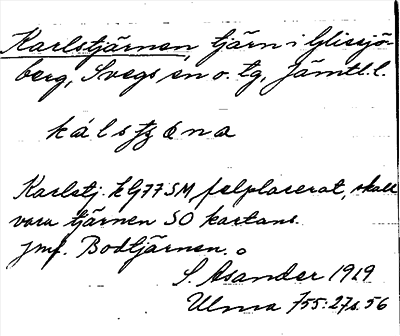 Karlstjärnen, tjärn i Glissjö-
berg, Svegs sn o. tg, Jämtl. l.
Karlstj. kG77SM, felplacerat, skall
vara tjärnen SO kartans.
jmf. Bodtjärnen.
S. Asander 1919
Ulma 755:27 s. 56